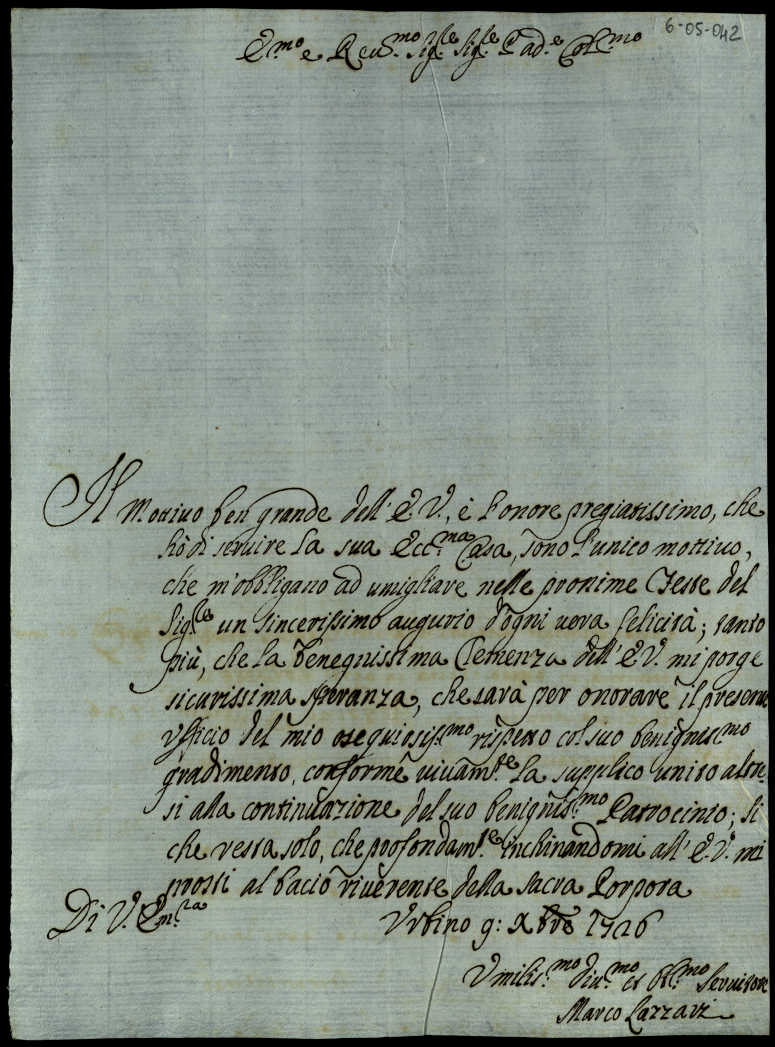 6-05-042
E.mo e Reu.mo Sig.re Sig.re Pad.e Col.mo
Il Mottiuo ben grande dell' E. V., è l'onore pregiatissimo, che
hò di seruire la sua Ecc.ma Casa, sono l'unico mottiuo,
che m'obbligano ad umigliare nelle prosime Feste del
Sig.re un sincerissimo augurio d'ogni uera felicità; tanto
più, che la benegnissima Clemenza dell' E. V. mi porge
sicurissima speranza, che sarà per onorare il presente
vfficio del mio osequiosiss.mo rispetto col suo benigness.mo
gradimento, conforme uiuam.te la supplico unito altre,
si alla continuazione del suo benigniss.mo Patrocinio; si
che resta solo, che profondam.te inchinandomi all' E. V. mi
prostri al bacio riuerente della sacra Porpora
Di V. Em.za Vrbino 9: Xbre 1726
Vmilis.mo diu.mo et Ob.mo Seruitore
Marco Lazzari